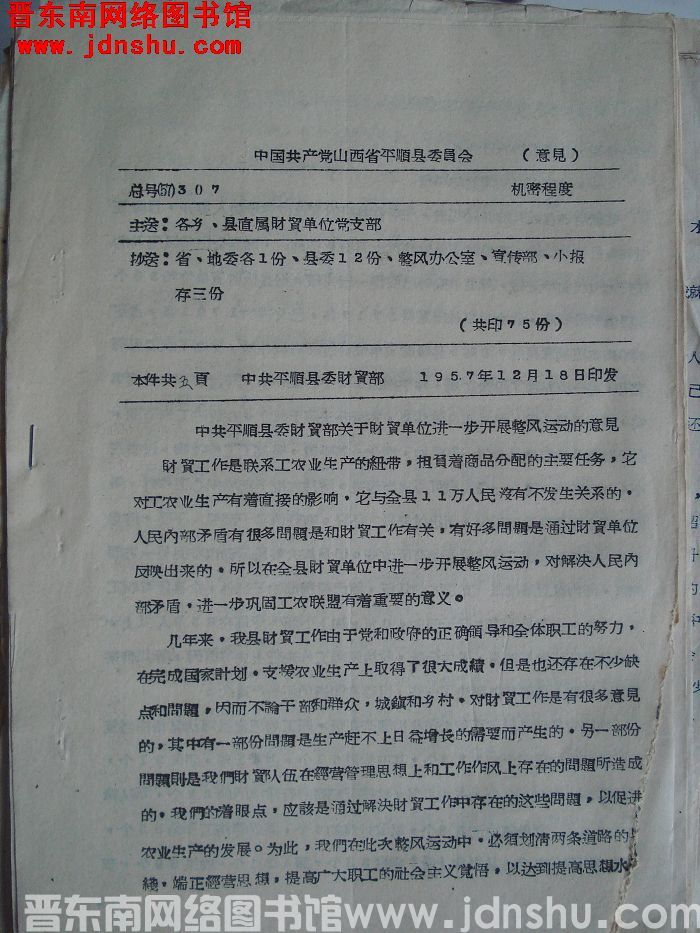 晋东南网络图书馆
www.jdnshu.com
中国共产党山西省平順县委員会 （意見）
总号(57)307 机密程度
主送：各乡、县直属財貿单位党支部
抄送：省、地委各1份、县委12份、整风办公室、宣传部、小报
存三份
（共印75份）
本件共五頁 中共平順县委財貿部 1957年12月18日印发
中共平順县委財貿部关于財貿单位进一步开展整风运动的意見
財貿工作是联系工农业生产的紐带，担負着商品分配的主要任务，它
对工农业生产有着直接的影响．它与全县11万人民沒有不发生关系的．
人民內部矛盾有很多問題是和財貿工作有关，有好多問題是通过財貿单位
反映出来的．所以在全县財貿单位中进一步开展整风运动，对解决人民內
部矛盾．进一步巩固工农联盟有着重要的意义。
几年来．我县財貿工作由于党和政府的正确领导和全体职工的努力．
在完成国家計划．支援农业生产上取得了很大成績．但是也还存在不少缺
点和問題，因而不論干部和群众，城鎮和乡村．对財貿工作是有很多意見
的，其中有一部份問題是生产赶不上日益增长的需要而产生的．另一部份
問題則是我們財貿队伍在經营管理思想上和工作作风上存在的問題所造成
的．我們的着眼点，应該是通过解决財貿工作中存在的这些問題，以促进
农业生产的发展。为此，我們在此次整风运动中．必須划清两条道路的
綫．端正經营思想，提高广大职工的社会主义覚悟，以达到提高思想水
晋东南网络图书馆www.jdnshu.com